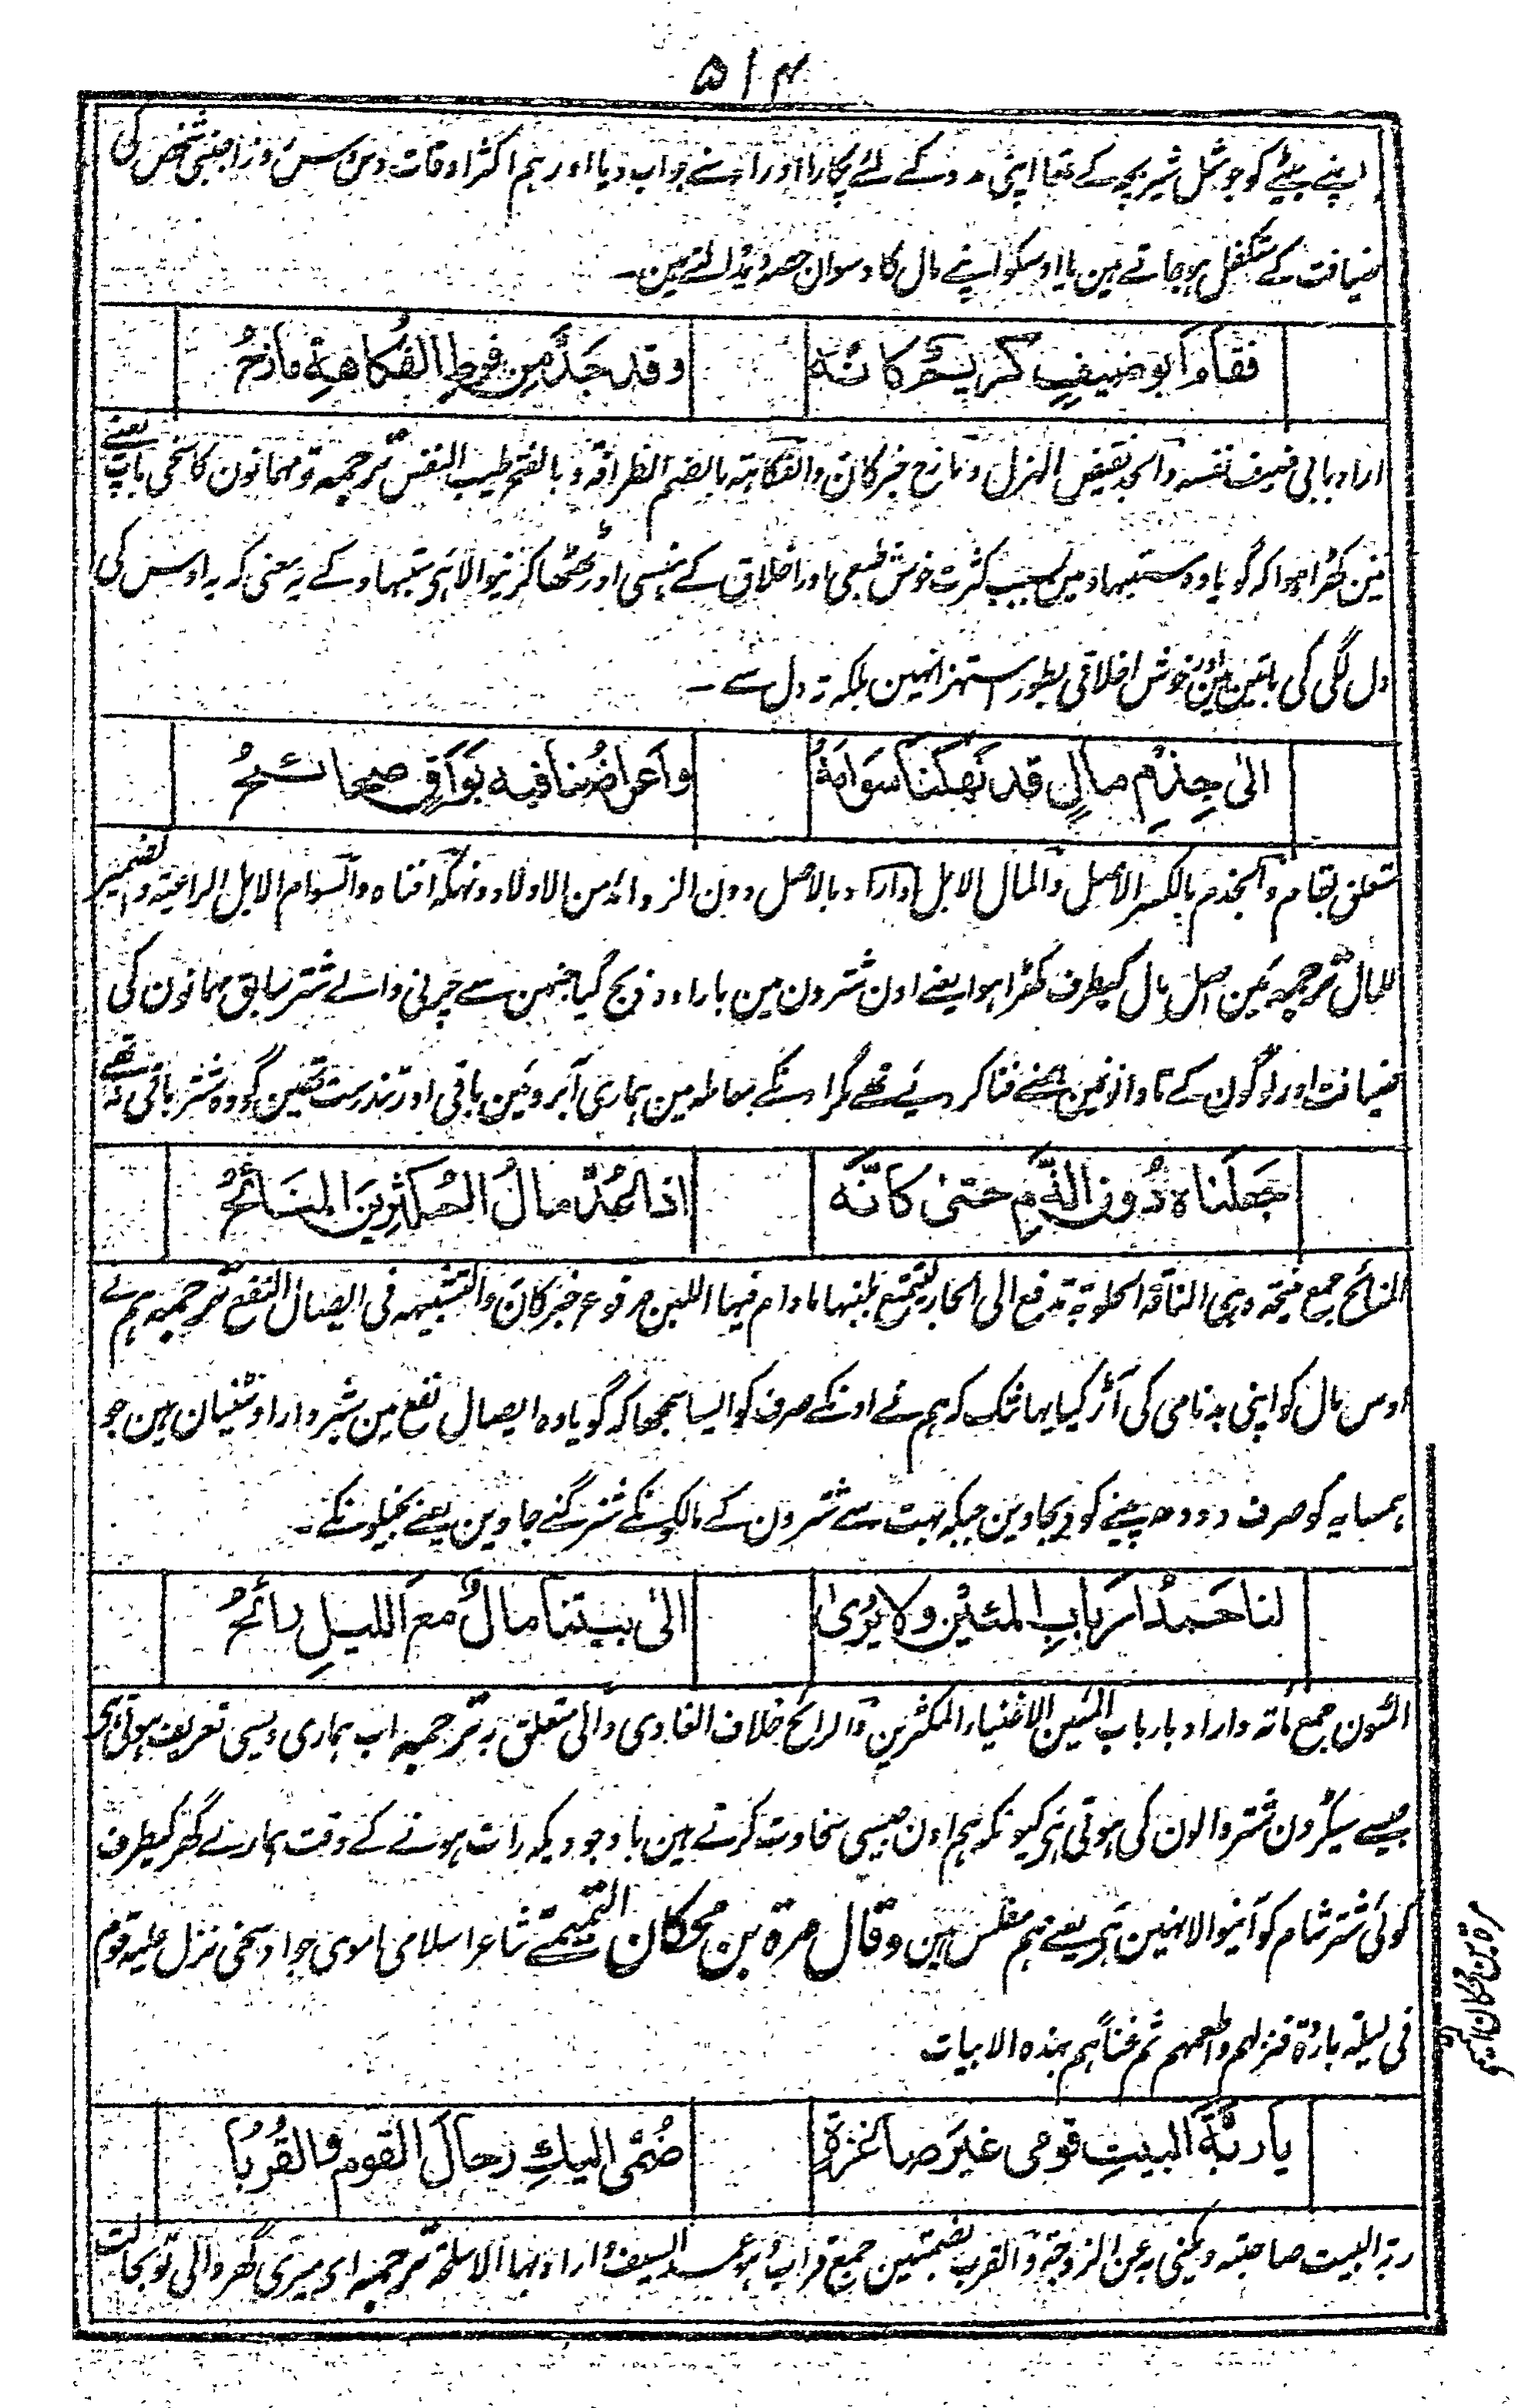 ۵۱۴
اپنے بیٹے کو جو مثل شیر بچہ کے تھا اپنی مدد کے لئے پکارا اور اسنے جواب دیا اور ہم اکثر اوقات دس دس روز اجنبی شخص کی
ضیافت کے متکفل ہو جاتے ہین یا اوسکو اپنے مال کا دسوان حصہ دیڈالتے ہین۔
فقامَ أبو ضيفٍ كريمٌ كانّه وقد جَدَّ من فرطِ الفُكاهةِ مازحُ
اراد بابی ضیف نفسہ والجد نقیض الہزل ومازح خبر کان والفکاہتہ بالضم الظرافۃ وبالفتح طیب النفس ترجمہ تو مہمانون کا سخی باپ یعنے
مین کھڑا ہوا کہ گویا وہ ستیہاد مین بسبب کثرت خوش طبعی اور اخلاق کے ہنسی اور ٹھٹھا کرنیوالا ہی ستیہاد کے یہ معنی کہ یہ اوس کی
دل لگی کی باتین ہین اور خوش اخلاقی بطور استہزا نہین بلکہ تہ دل سے ۔
الى جِذمِ مالٍ قد نَهكنا سَوامَهُ واَعراضُنا فيه بَواقٍ صحائحُ
متعلق بقام والجذم بالکسر الاصل والمال الابل واراد بالاصل دون الزوائد من الاولاد ونہکہ افناہ والسوام الابل الراعیۃ والضمیر
للمال ترجمہ مین اصل مال کیطرف کھڑا ہوا یعنے اون شترون مین بارادہ ذبح گیا جنمین سے چرنی والے شتر سابق مہمانون کی
ضیافت اور لوگون کے تاوانونمین ہمنے فنا کر دیے تھے مگر اونکے معاملہ مین ہماری آبروئین باقی اور تندرست تھین گو وہ شتر باقی نہ تھے
جَعلناه دُونَ الذّمِ حتى كانّه اذا عُدَّ مالُ المُكثرينَ المنَائحُ
المنائح جمع منیحۃ وہی الناقۃ الحلوبۃ تدفع الی الجار لیتمتع بلبنہا مادام فیہا اللبن مرفوع خبر کان والتشبیہ فی ایصال النفع ترجمہ ہم نے
اوس مال کو اپنی بدنامی کی آڑ کیا یہانتک کہ ہم نے اونکے صرف کو ایسا سمجھا کہ گویا وہ ایصال نفع مین شیردار اونٹنیان ہین جو
ہمسایہ کو صرف دودہ پینے کو دیجاوین جبکہ بہت سے شترون کے مالکونکے شتر گنے جاوین یعنے بخیلونکے ۔
لنا حَمدُ اَربابِ المئينَ ولا يُرى الى بيتنا مالٌ معَ الليلِ رائحُ
المئون جمع مائۃ واراد بارباب المئین الاغنیاء المکثرین والرائح خلاف الغادی والی متعلق بہ ترجمہ اب ہماری ویسی تعریف ہوتی ہی
جیسے سیکڑون شتر والون کی ہوتی ہی کیونکہ ہم اون جیسی سخاوت کرتے ہین باوجودیکہ رات ہونے کے وقت ہمارے گھر کیطرف
کوئی شتر شام کو آنیوالا نہین ہی یعنے ہم مفلس ہین وقال مرة بن محكان التميمي شاعر اسلامی اموی جواد سخی نزل علیہ قوم
فی لیلۃ باردۃ فنزلہم واطعمہم ثم غناہم بہذہ الابیات
مرہ بن محکان التمیمی
يا ربّةَ البيتِ قومی غيرَ صاغرةٍ ضُمّی اليكِ رحالَ القومِ والقُرُبا
ربۃ البیت صاحبتہ ویکنی بہ عن الزوجۃ والقرب بضمتین جمع قراب وہو غمد السیف واراد بہا الاسلحۃ ترجمہ ای میری گھر والی تو بحالت